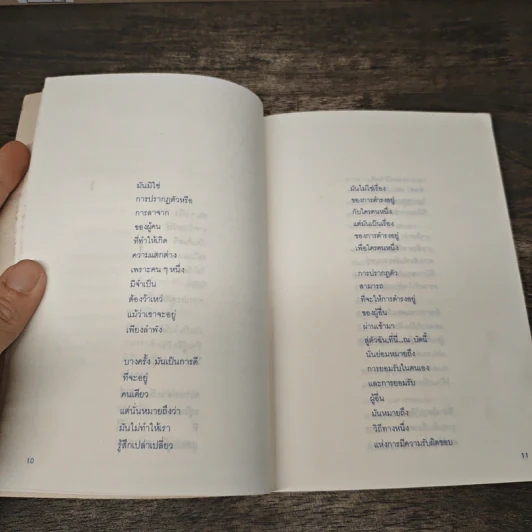 มันมิใช่
การปรากฏตัวหรือ
การลาจาก
ของผู้คน
ที่ทำให้เกิด
ความแตกต่าง
เพราะคน ๆ หนึ่ง
มิจำเป็น
ต้องว้าเหว่
แม้ว่าเขาจะอยู่
เพียงลำพัง
บางครั้ง มันเป็นการดี
ที่จะอยู่
คนเดียว
แต่นั่นหมายถึงว่า
มันไม่ทำให้เรา
รู้สึกเปล่าเปลี่ยว
10
มันไม่ใช่เรื่อง
ของการดำรงอยู่
กับใครคนหนึ่ง
แต่มันเป็นเรื่อง
ของการดำรงอยู่
เพื่อใครคนหนึ่ง
การปรากฏตัว
สามารถ
ที่จะให้การดำรงอยู่
ของผู้อื่น
ผ่านเข้ามา
สู่ตัวฉัน,ที่นี่...ณ บัดนี้
นั่นย่อมหมายถึง
การยอมรับในตนเอง
และการยอมรับ
ผู้อื่น
มันหมายถึง
วิถีทางหนึ่ง
แห่งการมีความรับผิดชอบ
11